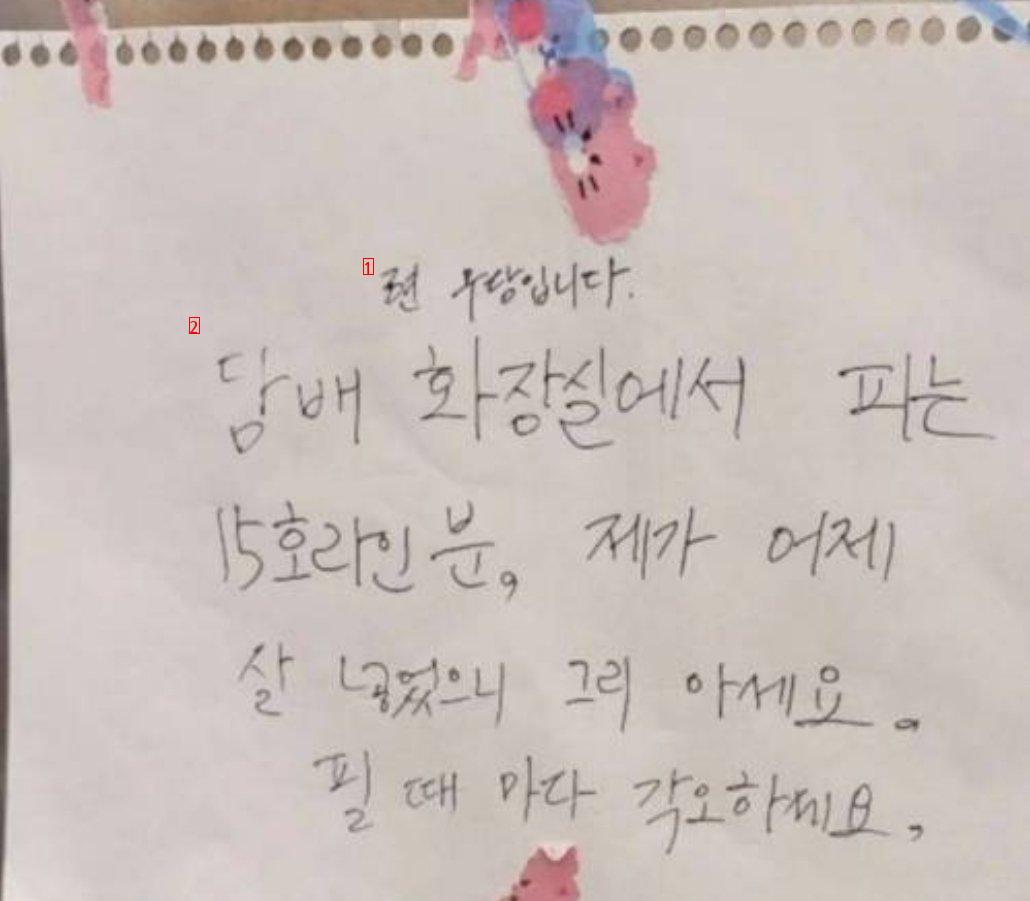 1 전 무당입니다.
2 담배 화장실에서 피는
15호라인분, 제가 어제
살 넣었으니 그리 아세요.
필 때 마다 각오하세요,